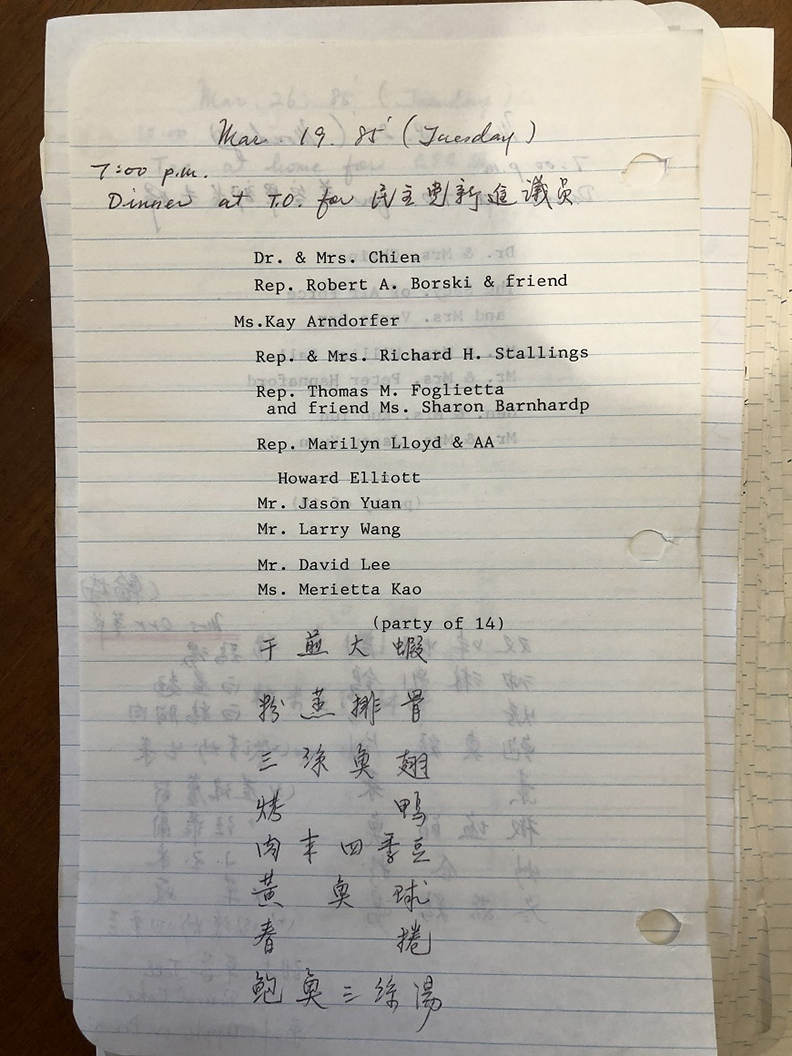 Mar. 19. 85' (Tuesday)
7:00 p.m.
Dinner at T.O. for 民主党新進議員
Dr. & Mrs. Chien
Rep. Robert A. Borski & friend
Ms.Kay Arndorfer
Rep. & Mrs. Richard H. Stallings
Rep. Thomas M. Foglietta
and friend Ms. Sharon Barnhardp
Rep. Marilyn Lloyd & AA
Howard Elliott
Mr. Jason Yuan
Mr. Larry Wang
Mr. David Lee
Ms. Merietta Kao
(party of 14)
干煎大蝦
粉蒸排骨
三絲魚翅
烤鴨
肉末四季豆
黃魚球
春捲
鮑魚三絲湯